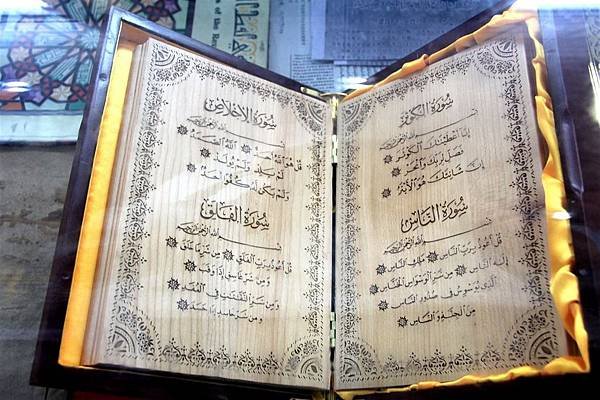 سورة الكوثر
بسم الله الرحمن الرحيم
إنا أعطينك الكوثر
فصل لربك وانحر
إن شانئك هو الأبتر
سورة الناس
بسم الله الرحمن الرحيم
قل أعوذ برب الناس ملك الناس
إله الناس من شر الوسواس الخناس
الذي يوسوس في صدور الناس
من الجنة والناس
سورة الإخلاص
بسم الله الرحمن الرحيم
قل هو الله أحد الله الصمد
لم يلد ولم يولد
ولم يكن له كفوا أحد
سورة الفلق
بسم الله الرحمن الرحيم
قل أعوذ برب الفلق من شر ما خلق
ومن شر غاسق إذا وقب
ومن شر النفثت في العقد
ومن شر حاسد إذا حسد
of the